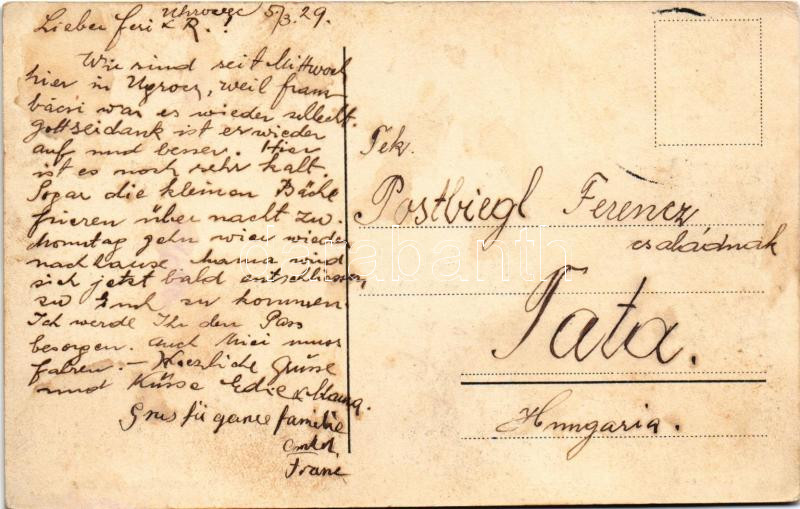 Uhrowze 5/3. 29.
Lieber Feri & R.!
Wir sind seit Mittwoch
hier in Ugrocz, weil fram
bácsi war es wieder schlecht.
gottseidank ist er wieder
auf und besser. Hier
ist es noch sehr kalt.
Sogar die kleinen Bäche
frieren über nacht zu.
Montag gehn wier wieder
nachhause Mama wird
sich jetzt bald entschliessen
zu Euch zu kommen
Ich werde Ihr den Pass
besorgen. auch Mici muss
fahren. – Herzliche Grüsse
und Küsse Edie & Mama.
Grus fü gance familie
Onkel
Franc
Tek.
Postbiegl Ferencz
családnak
Tata.
Hungaria.
darabanth